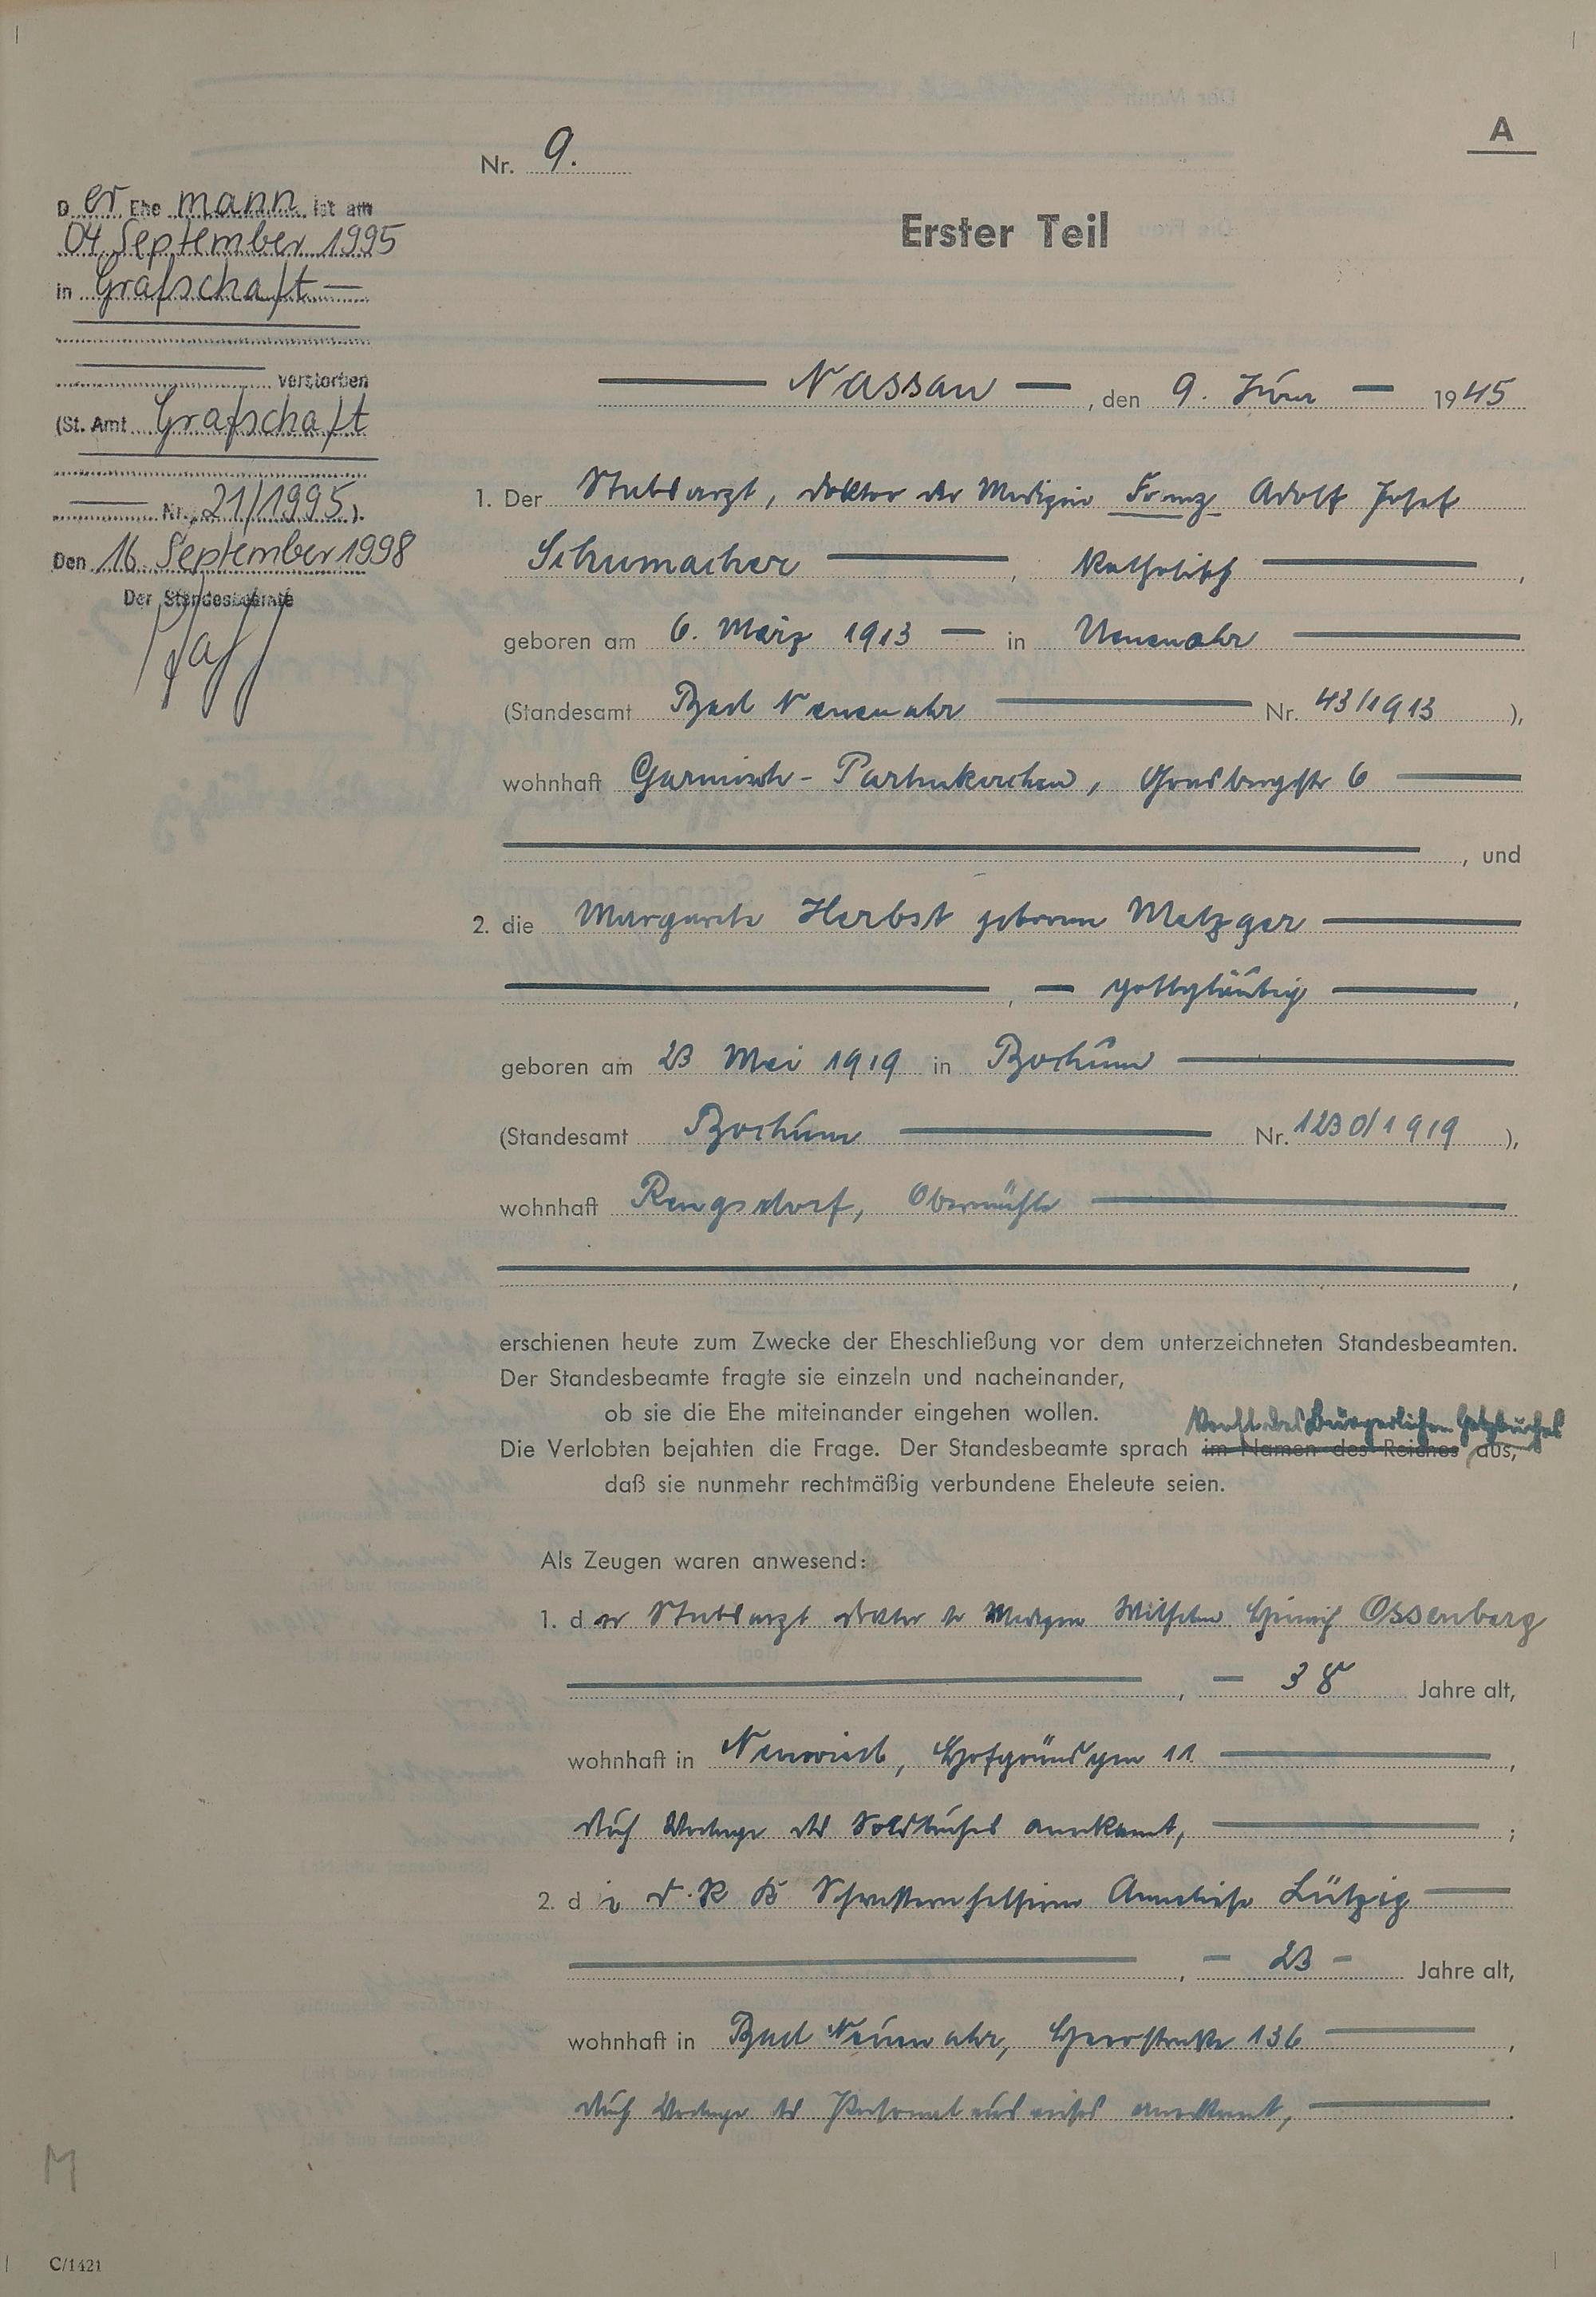 A
Nr. 9.
Erster Teil
Der Ehemann ist am
04. September 1995
in Grafschaft
verstorben
(St. Amt Grafschaft
Nr. 21/1995).
Den 16. September 1998
Der Standesbeamte
Nassau, den 9. Juni 1945
1. Der Stabsarzt, Doktor der Medizin Franz Adolf Josef
Schumacher, katholisch,
geboren am 6. März 1913 in Neuenahr
(Standesamt Bad Neuenahr Nr. 43/1913),
wohnhaft Garmisch-Partenkirchen, 6
, und
2. die Margarete Herbst geborene Metzger
, gottgläubig,
geboren am 23 Mai 1919 in Bochum
(Standesamt Bochum Nr. 1230/1919),
wohnhaft Rengsdorf, Obermühle
,
erschienen heute zum Zwecke der Eheschließung vor dem unterzeichneten Standesbeamten.
Der Standesbeamte fragte sie einzeln und nacheinander,
ob sie die Ehe miteinander eingehen wollen.
Kraft des Bürgerlichen Gesetzbuches
Die Verlobten bejahten die Frage. Der Standesbeamte sprach im Namen des Reiches aus,
daß sie nunmehr rechtmäßig verbundene Eheleute seien.
Als Zeugen waren anwesend:
1. der Stabsarzt Doktor der Medizin Wilhelm Heinrich Ossenberg
, 38 Jahre alt,
wohnhaft in Neuwied, Hofgründgen 11,
durch Vorlage des Soldbuches anerkannt, ;
2. die D.R.K. Schwesternhelferin Anneliese Lützig
, - 23 - Jahre alt,
wohnhaft in Bad Neuenahr, Heerstraße 136,
durch Vorlage des Personalausweises anerkannt, .
M
C/1421